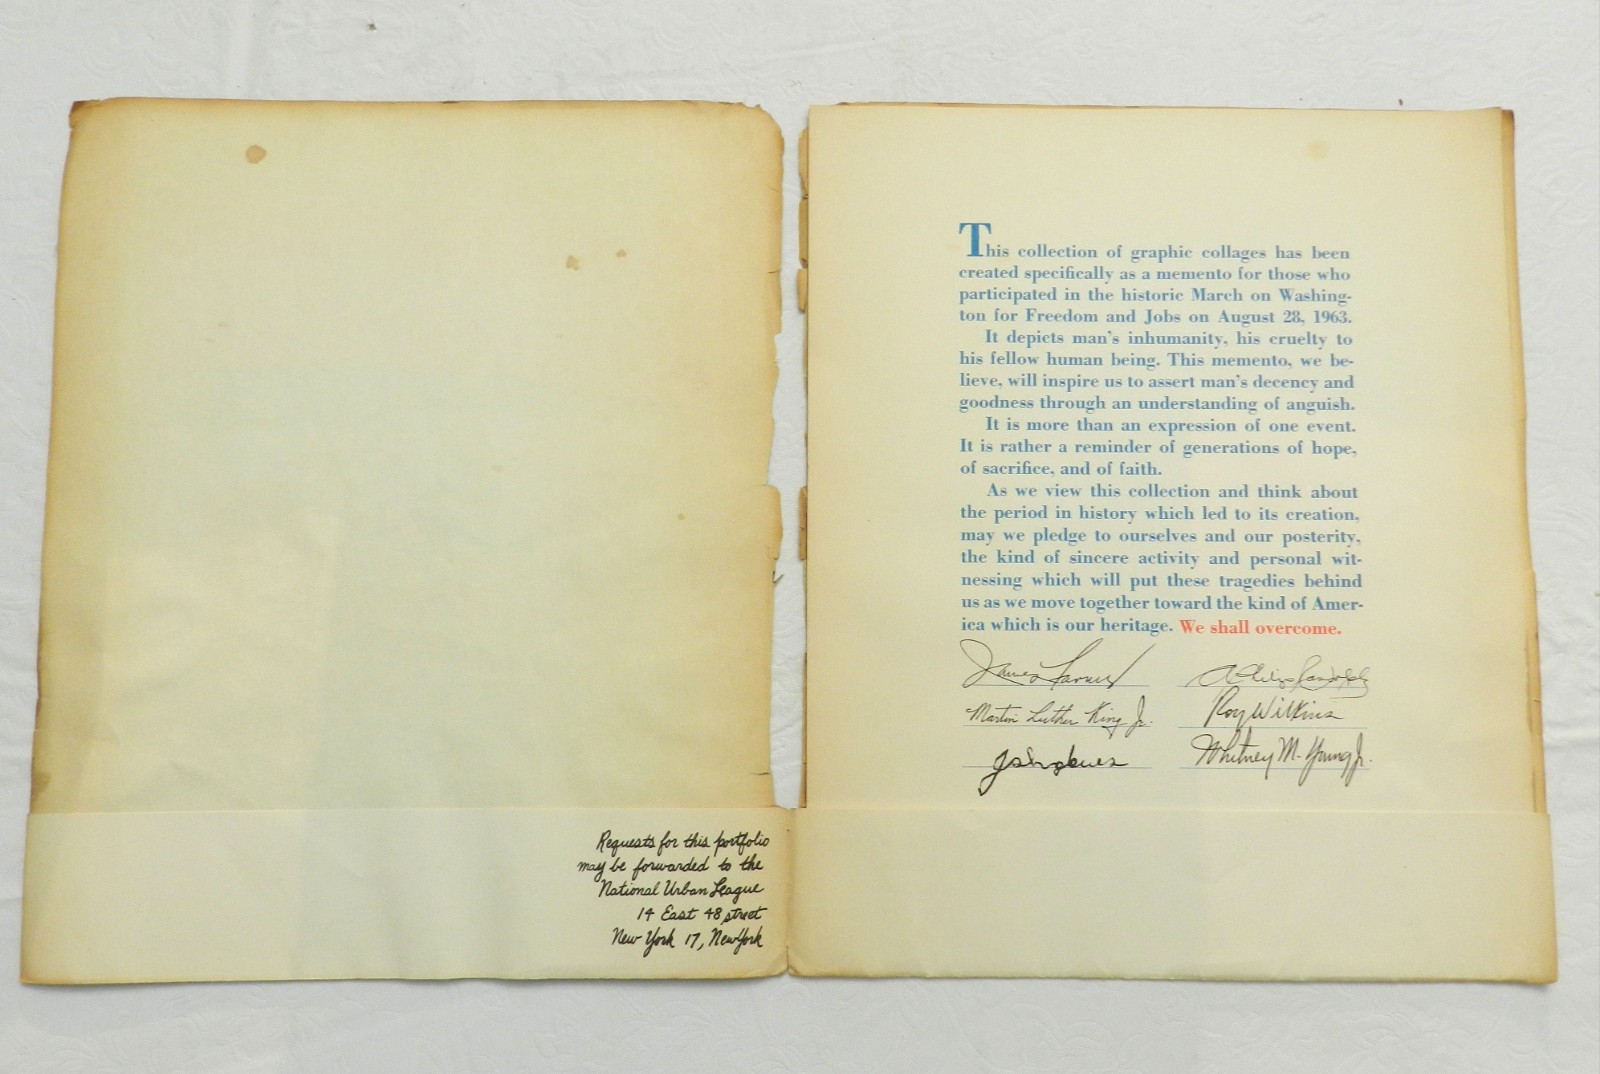 Requests for this portfolio
may be forwarded to the
National Urban League
14 East 48 street
New York 17, New York
This collection of graphic collages has been
created specifically as a memento for those who
participated in the historic March on Washing-
ton for Freedom and Jobs on August 28, 1963.
It depicts man's inhumanity, his cruelty to
his fellow human being. This memento, we be-
lieve, will inspire us to assert man's decency and
goodness through an understanding of anguish.
It is more than an expression of one event.
It is rather a reminder of generations of hope,
of sacrifice, and of faith.
As we view this collection and think about
the period in history which led to its creation,
may we pledge to ourselves and our posterity,
the kind of sincere activity and personal wit-
nessing which will put these tragedies behind
us as we move together toward the kind of Amer-
ica which is our heritage. We shall overcome.
James Farmer
A Philip Randolph
Martin Luther King Jr.
Roy Wilkins
John Lewis
Whitney M. Young Jr.